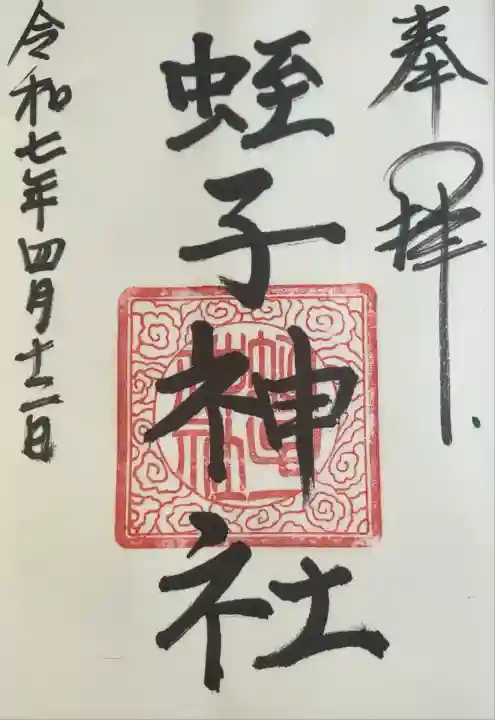 奉拝
蛭子神社
令和七年四月十二日